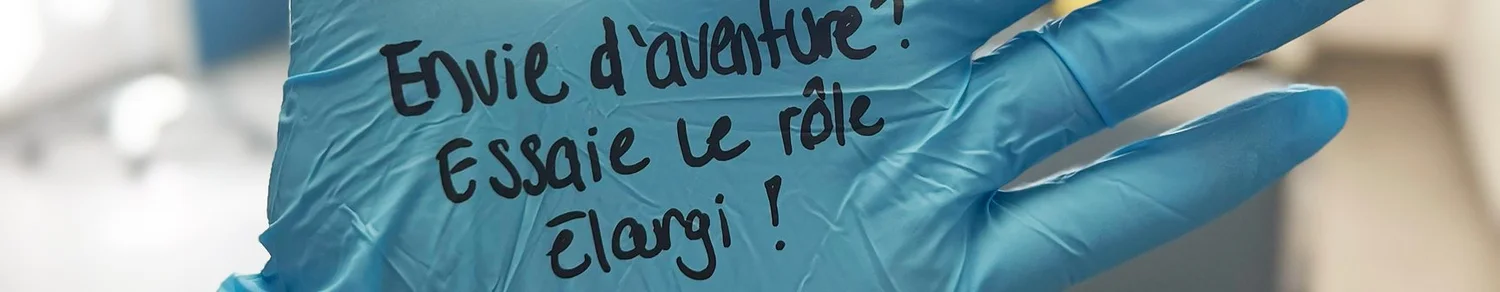 Envie d'aventure?
Essaie le rôle
Élargi !